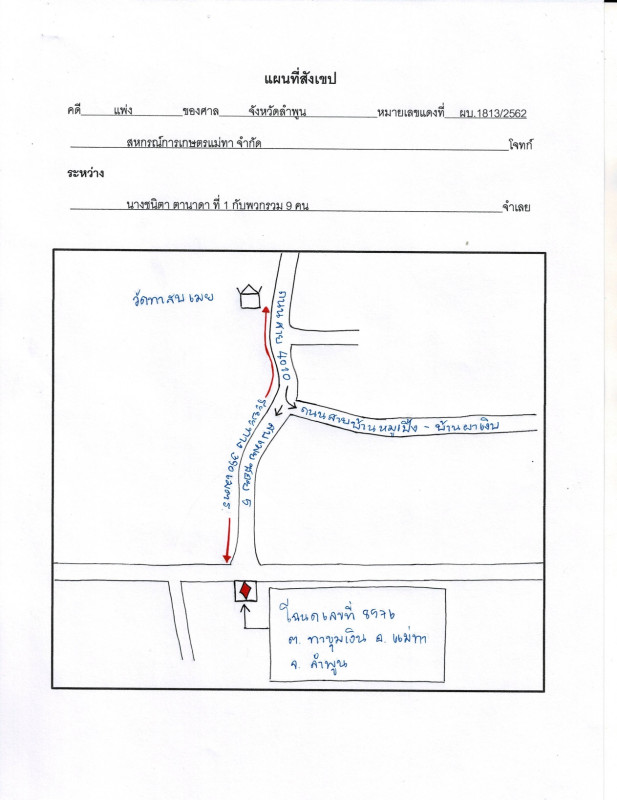 แผนที่สังเขป
คดี แพ่ง ของศาล จังหวัดลำพูน หมายเลขแดงที่ ผบ.1813/2562
สหกรณ์การเกษตรแม่ทา จำกัด โจทก์
ระหว่าง
นางชนิตา ตานาดา ที่ 1 กับพวกรวม 9 คน จำเลย
วัดทาสบเมย
ถนนสาย 4010
ถนนสายบ้านหมูเปิ้ง - บ้านผาเงิบ
สบเมย ซอย 5
ระยะทาง 390 เมตร
โฉนดเลขที่ 8976
ต. ทาขุมเงิน อ. แม่ทา
จ. ลำพูน